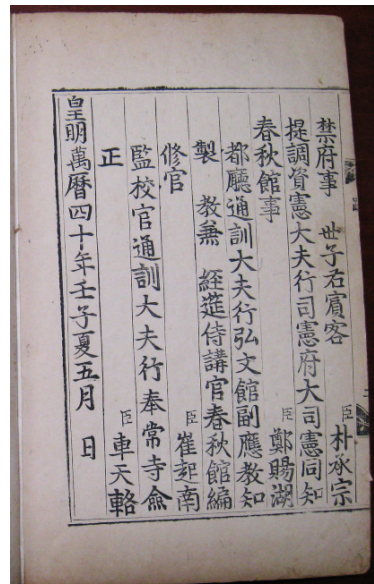 禁府事 世子右賓客 臣朴承宗
提調資憲大夫行司憲府大司憲同知
春秋館事 臣鄭賜湖
都廳通訓大夫行弘文館副應教知
製 教兼 經筵侍講官春秋館編
修官 臣崔起南
監校官通訓大夫行奉常寺僉
正 臣車天輅
皇明萬曆四十年壬子夏五月 日